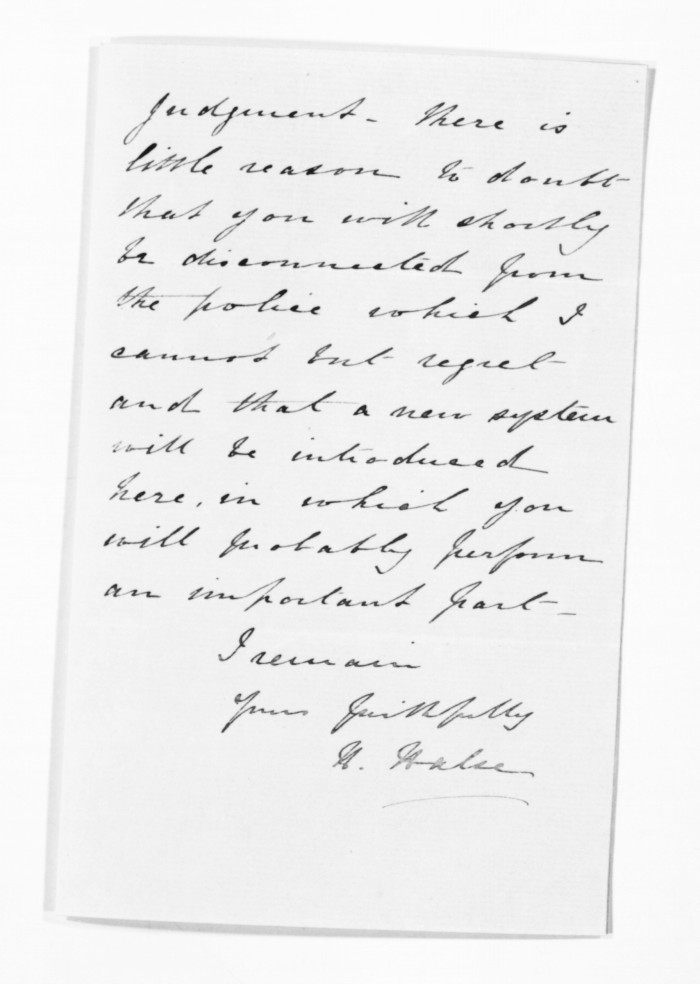 judgment - there is
little reason to doubt
that you will shortly
be disconnected from
the police which I
cannot but regret
and that a new system
will be introduced
here, in which you
will probably perform
an important part -
I remain
Yours faithfully
H. Halse